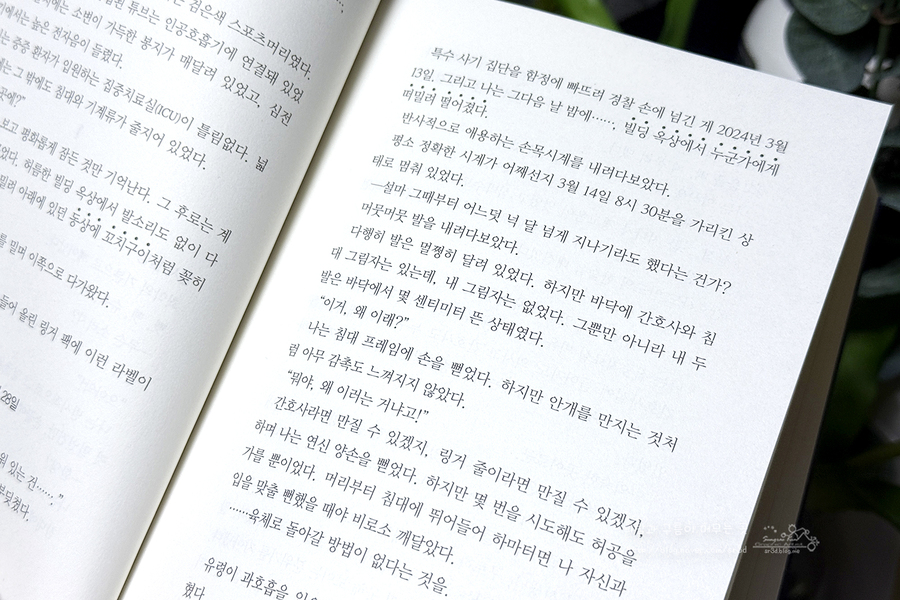 검은색 스포츠머리였다.
튜브는 인공호흡기에 연결돼 있었
에는 소변이 가득한 봉지가 매달려 있었고, 심전
기에서는 높은 전자음이 들렸다.
는 중증 환자가 입원하는 집중치료실(ICU)이 틀림없다. 넓
에는 그 밖에도 침대와 기계류가 줄지어 있었다.
곳에?"
보고 평화롭게 잠든 것만 기억난다. 그 후로는 계
았다. 허름한 빌딩 옥상에서 발소리도 없이 다
밀려 아래에 있던 동상에 꼬치구이처럼 꽂히
를 밀며 이쪽으로 다가왔다.
들어 올린 링거 팩에 이런 라벨이
28일
워 있는 건……."
부딪쳤다.
특수 사기 집단을 함정에 빠뜨려 경찰 손에 넘긴 게 2024년 3월
13일. 그리고 나는 그다음 날 밤에……, 빌딩 옥상에서 누군가에게
떠밀려 떨어졌다.
반사적으로 애용하는 손목시계를 내려다보았다.
평소 정확한 시계가 어째선지 3월 14일 8시 30분을 가리킨 상
태로 멈춰 있었다.
―설마 그때부터 어느덧 넉 달 넘게 지나기라도 했다는 건가?
머뭇머뭇 발을 내려다보았다.
다행히 발은 멀쩡히 달려 있었다. 하지만 바닥에 간호사와 침
대 그림자는 있는데, 내 그림자는 없었다. 그뿐만 아니라 내 두
발은 바닥에서 몇 센티미터 뜬 상태였다.
"이거, 왜 이래?"
나는 침대 프레임에 손을 뻗었다. 하지만 안개를 만지는 것처
럼 아무 감촉도 느껴지지 않았다.
"뭐야, 왜 이러는 거냐고!"
간호사라면 만질 수 있겠지, 링거 줄이라면 만질 수 있겠지,
하며 나는 연신 양손을 뻗었다. 하지만 몇 번을 시도해도 허공을
가를 뿐이었다. 머리부터 침대에 뛰어들어 하마터면 나 자신과
입을 맞출 뻔했을 때야 비로소 깨달았다.
……육체로 돌아갈 방법이 없다는 것을.
유령이 과호흡을
했다